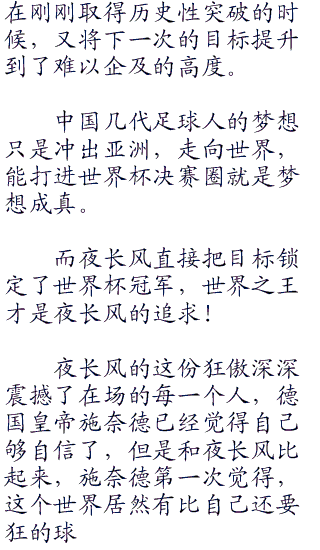 在刚刚取得历史性突破的时
候，又将下一次的目标提升
到了难以企及的高度。
中国几代足球人的梦想
只是冲出亚洲，走向世界，
能打进世界杯决赛圈就是梦
想成真。
而夜长风直接把目标锁
定了世界杯冠军，世界之王
才是夜长风的追求！
夜长风的这份狂傲深深
震撼了在场的每一个人，德
国皇帝施奈德已经觉得自己
够自信了，但是和夜长风比
起来，施奈德第一次觉得，
这个世界居然有比自己还要
狂的球